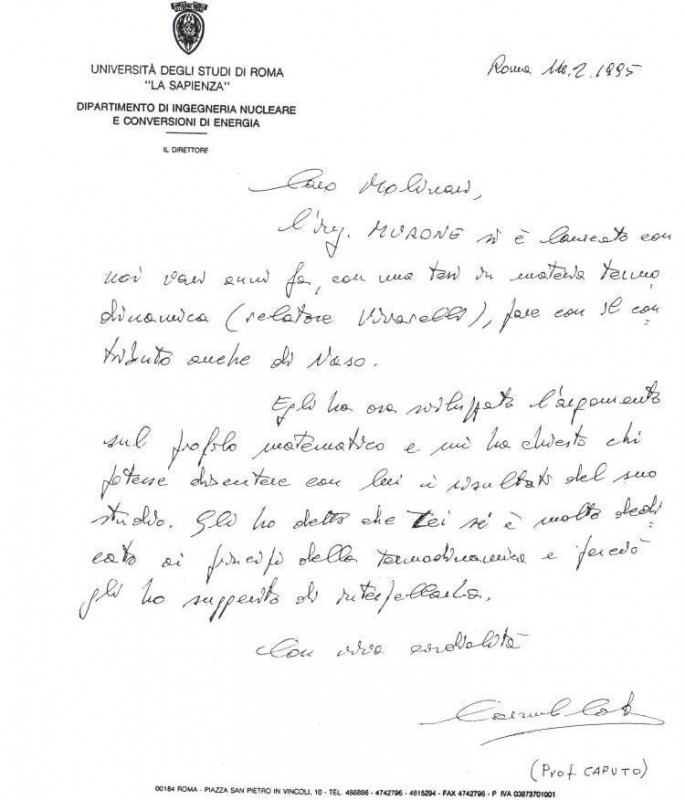 UNIVERSITÀ DEGLI STUDI DI ROMA
"LA SAPIENZA"
DIPARTIMENTO DI INGEGNERIA NUCLEARE
E CONVERSIONI DI ENERGIA
IL DIRETTORE
Roma .2.1995
Caro Molinari,
l'ing. MURONE si è laureato con
noi vari anni fa, con una tesi in materia termo
dinamica (relatore Vivarelli), pare con il con
tributo anche di Naso.
Egli ha ora sviluppato l'argomento
sul profilo matematico e mi ha chiesto chi
potesse discutere con lui i risultati del suo
studio. Gli ho detto che Lei si è molto dedi
cato ai principi della termodinamica e perciò
gli ho suggerito di interpellarLa.
Con viva cordialità
(Prof. CAPUTO)
00184 ROMA - PIAZZA SAN PIETRO IN VINCOLI, 10 - TEL. 486886 - 4742796 - 4815294 - FAX 4742796 - P IVA 03873701001